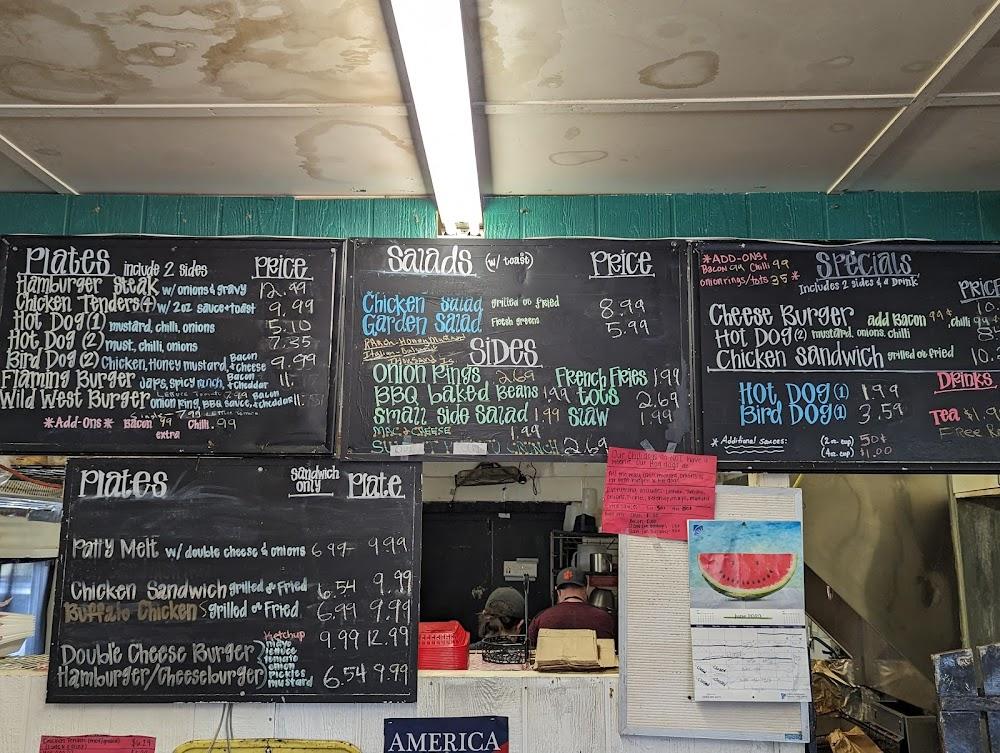 Plates include 2 sides PRICE
Hamburger Steak w/ onions & gravy 12.99
Chicken Tenders (4) w/ 2oz sauce + toast 9.99
Hot Dog (1) mustard, chilli, onions 5.10
Hot Dog (2) must, chilli, onions 7.35
Bird Dog (2) Chicken, Honey mustard, Bacon & cheese 9.99
Flaming Burger Japs, spicy ranch, Bacon & cheddar 11.
Wild West Burger onion ring, BBQ sauce, Bacon & cheddar 11.
*Add-Ons* Bacon .99 Chilli .99
extra
Salads (w/ toast) PRICE
Chicken Salad grilled or fried 8.99
Garden Salad Fresh greens 5.99
Ranch-Honey Mustard
Italian-
SIDES
Onion Rings 2.69 French Fries 1.99
BBQ Baked Beans 1.99 tots 2.69
Small side Salad 1.99 Slaw 1.99
Mac & Cheese 1.99
2.69
*ADD-ONS:
Bacon .99 Chilli .99
onion rings/tots .35 *
Specials
Includes 2 sides & a Drink
PRICE
Cheese Burger add Bacon .99¢, chilli .99¢
Hot Dog (2) mustard, onions, chilli
Chicken Sandwich grilled or fried 10.
Hot Dog (1) 1.99
Bird Dog (1) 3.59
DRINKS
Tea $1.9
Free Re
* Additional Sauces: (2oz cup) 50¢
(4oz cup) $1.00
Plates Sandwich only Plate
Patty Melt w/ double cheese & onions 6.99 9.99
Chicken Sandwich grilled or fried 6.54 9.99
Buffalo Chicken S grilled or fried 6.99 9.99
Double Cheese Burger 9.99 12.99
Hamburger/Cheeseburger 6.54 9.99
Ketchup
mayo
lettuce
tomato
onion
pickles
mustard
June 2023
AMERICA